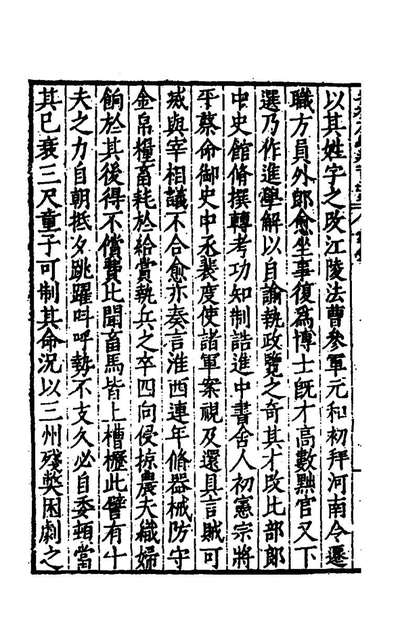 以其姓字之改江陵法曹參軍元和初拜河南令遷
職方員外郎愈坐事復爲博士旣才高數黜官又下
選乃作進學解以自諭執政覽之奇其才改比部郎
中史館脩撰轉考功知制誥進中書舍人初憲宗將
平蔡命御史中丞裴度使諸軍案視及還具言賊可
滅與宰相議不合愈亦奏言淮西連年脩器械防守
金帛糧畜耗於給賞執兵之卒四向侵掠農夫織婦
餉於其後得不償費比聞畜馬皆上槽櫪此譬有十
夫之力自朝抵夕跳躍叫呼勢不支久必自委頓當
其已衰三尺童子可制其命況以三州殘弊困劇之